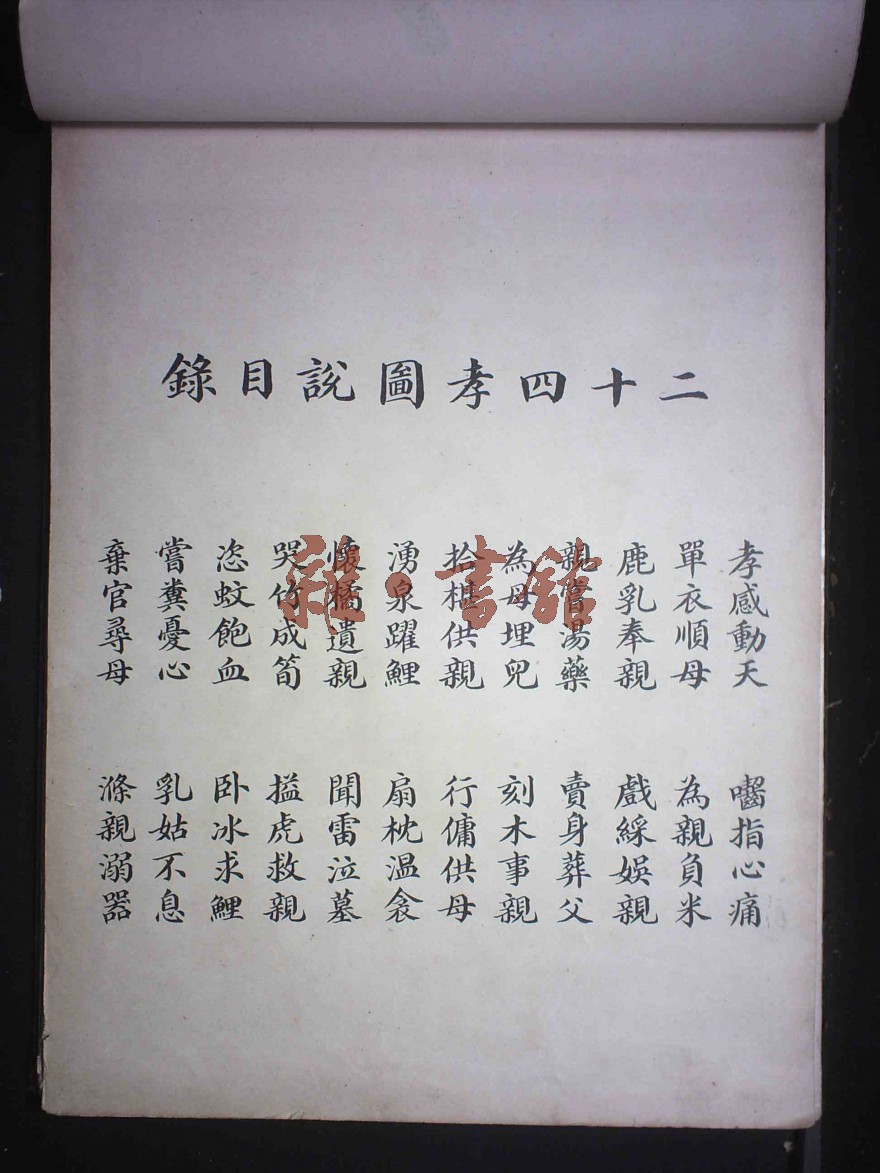 二十四孝圖說目錄
孝感動天
嚙指心痛
單衣順母
為親負米
鹿乳奉親
戲綵娛親
親嘗湯藥
賣身葬父
為母埋兒
刻木事親
拾椹供親
行傭供母
湧泉躍鯉
扇枕温衾
懷橘遺親
聞雷泣墓
哭竹成筍
搤虎救親
恣蚊飽血
卧冰求鯉
嘗糞憂心
乳姑不息
棄官尋母
滌親溺器
雜·書館